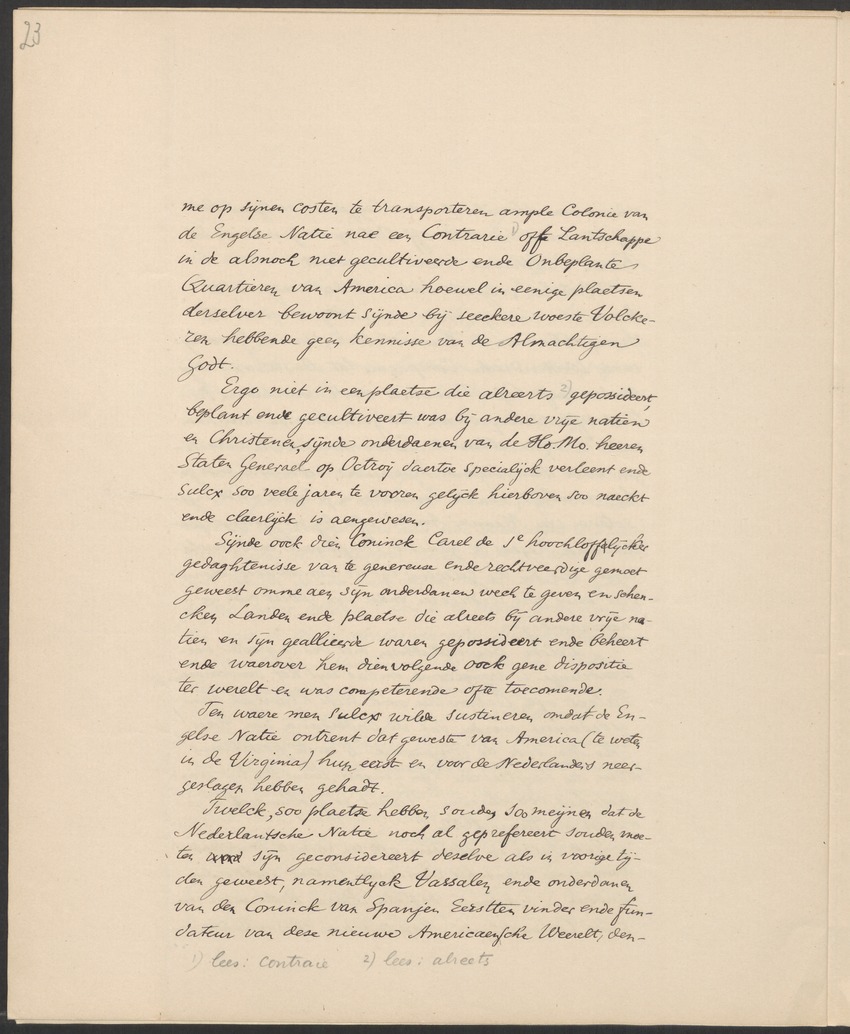 23
me op sijnen costen te transporteren ample Colonie van
de Engelse Natie nae een Contrarie 1) offe Lantschappe
in de alsnoch niet gecultiveerde ende Onbeplante
Quartieren van America hoewel in eenige plaetsen
derselver bewoont sijnde bij seeckere woeste Volcke-
ren hebbende geen kennisse van de Almachtigen
Godt.
Ergo niet in een plaetse die alreerts 2) gepossideert,
beplant ende gecultiveert was bij andere vrije natien
en Christenen, sijnde onderdaenen van de Ho. Mo. heeren
Staten Generael op Octroij daertoe specialijck verleent ende
sulcx soo veele jaren te vooren gelijck hierboven soo naeckt
ende claerlijck is aengewesen.
Sijnde oock dien Coninck Carel de 1e hoochloffelijcker
gedaghtenisse van te genereuse ende rechtveerdige gemoet
geweest omme aen sijn onderdanen wech te geven en schen-
cken Landen ende plaetse die alreets bij andere vrije na-
tien en sijn geallieerde waren gepossideert ende beheert
ende waerover hem dienvolgende oock gene dispositie
ter werelt en was competerende ofte toecomende.
Ten waere men sulcx wilde sustineren omdat de En-
gelse Natie ontrent dat geweste van America (te weten
in de Virginia) hun eerst en voor de Nederlanders neer-
geslagen hebben gehadt.
Twelck, soo plaetse hebben souden soo meijnen dat de
Nederlantsche Natie noch al geprefereert souden moe-
ten sijn geconsidereert deselve als in voorige tij-
den geweest, namentlyck Vassalen ende onderdanen
van den Coninck van Spanjen Eerstten vinder ende fun-
dateur van dese nieuwe Americaensche Weerelt, den-
1) lees: contraie 2) lees: alreets